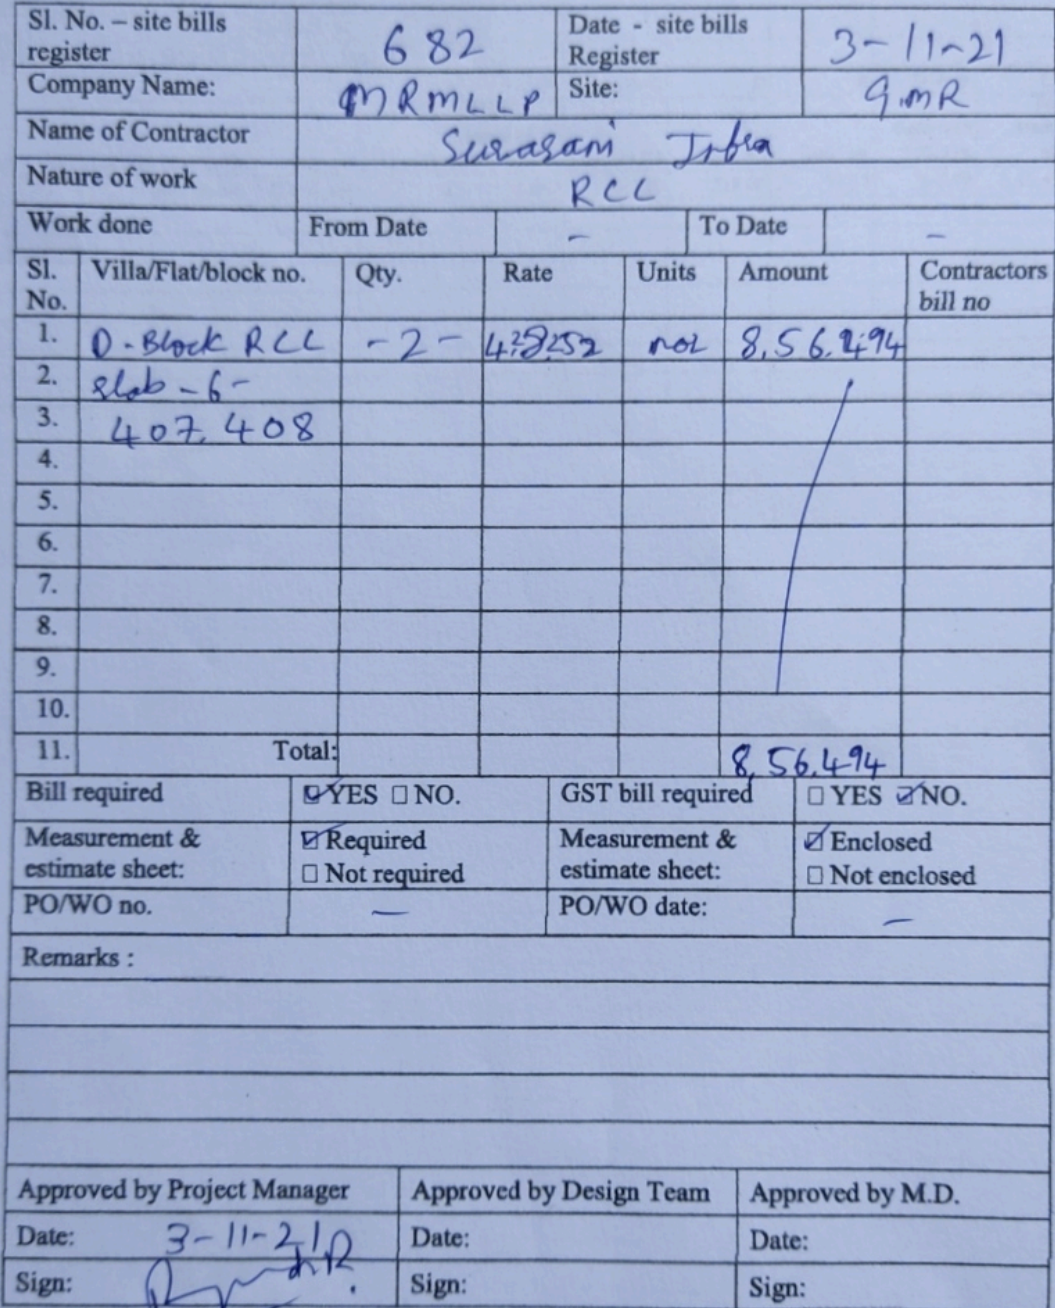 Sl. No. – site bills register 682 Date - site bills Register 3-11-21
Company Name: MRMLLP Site: G.MR
Name of Contractor Surasani Infra
Nature of work RCC
Work done From Date - To Date -
Sl. No. Villa/Flat/block no. Qty. Rate Units Amount Contractors bill no
1. D-Block RCC -2- nos
2. slab-6-
3. 407, 408
4.
5.
6.
7.
8.
9.
10.
11. Total: 8,56,494
Bill required ☑ YES ☐ NO. GST bill required ☐ YES ☑ NO.
Measurement & estimate sheet: ☑ Required ☐ Not required Measurement & estimate sheet: ☑ Enclosed ☐ Not enclosed
PO/WO no. - PO/WO date: -
Remarks :
Approved by Project Manager Approved by Design Team Approved by M.D.
Date: 3-11-21 Date: Date:
Sign: Sign: Sign: